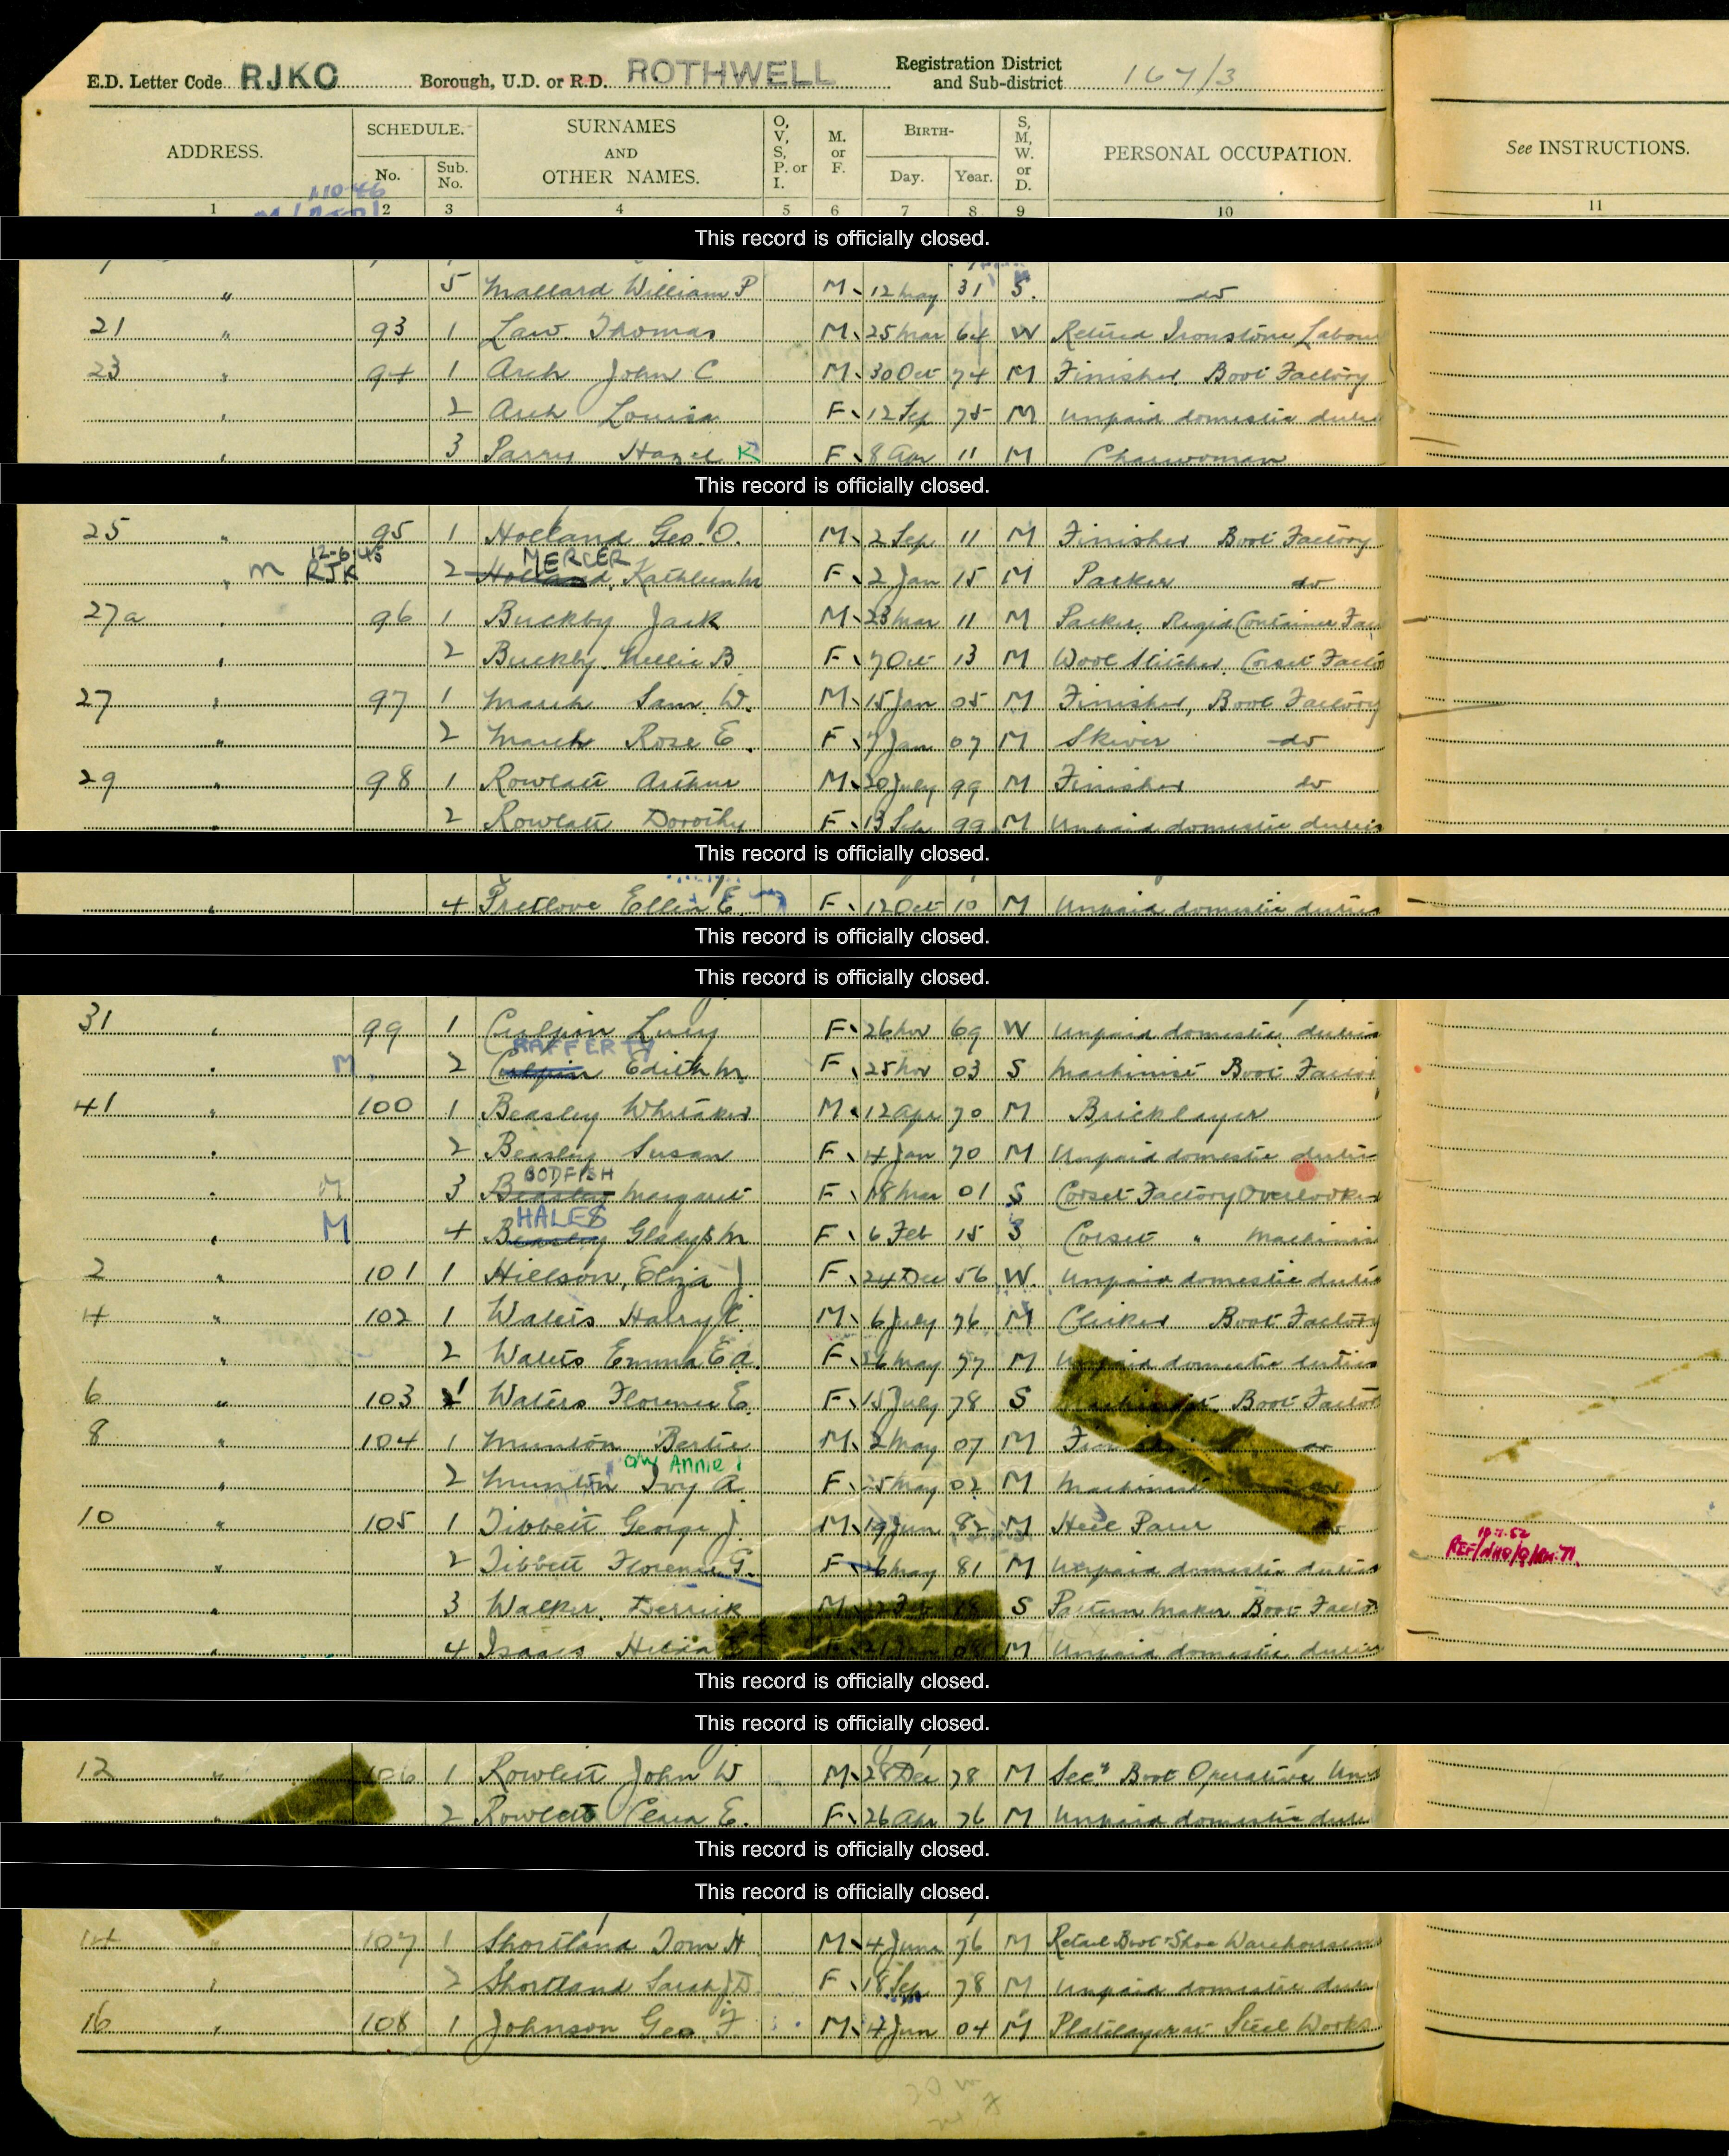 E.D. Letter Code RJKO Borough, U.D. or R.D. ROTHWELL Registration District and Sub-district 167/3
ADDRESS. SCHEDULE. No. Sub. No. SURNAMES AND OTHER NAMES. O, V, S, P. or I. M. or F. BIRTH- Day. Year. S, M, W. or D. PERSONAL OCCUPATION. See INSTRUCTIONS.
1 2 3 4 5 6 7 8 9 10 11
This record is officially closed.
" 5 Mallard William P M 12 May 31 S. do
21 " 93 1 Law Thomas M 25 Mar 64 W Retired Ironstone Labour
23 " 94 1 Arch John C M 30 Oct 74 M Finisher Boot Factory
" 2 Arch Louisa F 12 Sep 75 M Unpaid domestic duties
" 3 Parry Hazel K F 8 Apr 11 M Charwoman
This record is officially closed.
25 " 95 1 Holland Geo. O. M 2 Sep 11 M Finisher Boot Factory
12-6-45 MERCER
" M RJK 2 Holland Kathleen M F 2 Jan 15 M Packer do
27a " 96 1 Buckby Jack M 23 Mar 11 M Packer Rigid Container Fac
" 2 Buckby Nellie B F 7 Oct 13 M Wool Stitcher Corset Facto
27 " 97 1 March Sam. W. M 15 Jan 05 M Finisher, Boot Factory
" 2 March Rose E. F 7 Jan 07 M Skiver do
29 " 98 1 Rowlatt Arthur M 20 July 99 M Finisher do
" 2 Rowlatt Dorothy F 13 Sep 99 M Unpaid domestic duties
This record is officially closed.
" 4 Pretlove Ellen E. F 12 Oct 10 M Unpaid domestic duties
This record is officially closed.
This record is officially closed.
31 " 99 1 Culpin Lucy F 26 Nov 69 W Unpaid domestic duties
RAFFERTY
" M 2 Culpin Edith M. F 25 Nov 03 S Machinist Boot Facto
41 " 100 1 Beasley Whitaker M 12 Apr 70 M Bricklayer
" 2 Beasley Susan F 4 Jan 70 M Unpaid domestic duties
GODFISH
" M 3 Beasley Margaret F 18 Mar 01 S Corset Factory Overlooker
HALES
" M 4 Beasley Gladys M F 6 Feb 15 S Corset " Machinis
2 " 101 1 Hillson, Eliza J F 24 Dec 56 W. Unpaid domestic duties
4 " 102 1 Walters Harry C. M 6 July 76 M Clicker Boot Factory
" 2 Walters Emma E A. F 26 May 77 M Unpaid domestic duties
6 " 103 1 Walters Florence E. F 15 July 78 S Machinist Boot Factor
8 " 104 1 Munton Bertie M 2 May 07 M Fin do
Annie
" 2 Munton Ivy A F 25 May 02 M Machinist do
10 " 105 1 Tibbett George J. M 19 Jun 82 M Heel Parer do
" 2 Tibbett Florence G. F 26 May 81 M Unpaid domestic duties
" 3 Walker Derrick M S Pattern Maker Boot Facto
" 4 Isaacs Hilda M Unpaid domestic duties
This record is officially closed.
This record is officially closed.
12 " 106 1 Rowlett John W M 28 Dec 78 M Secy Boot Operative Uni
2 Rowlett Clara E. F 26 Apr 76 M Unpaid domestic dutie
This record is officially closed.
This record is officially closed.
14 " 107 1 Shortland Tom H M 4 June 76 M Retail Boot & Shoe Warehousem
" 2 Shortland Sarah J D F 18 Sep 78 M Unpaid domestic duties
16 " 108 1 Johnson Geo. F M 4 Jun 04 M Platelayer at Steel Works